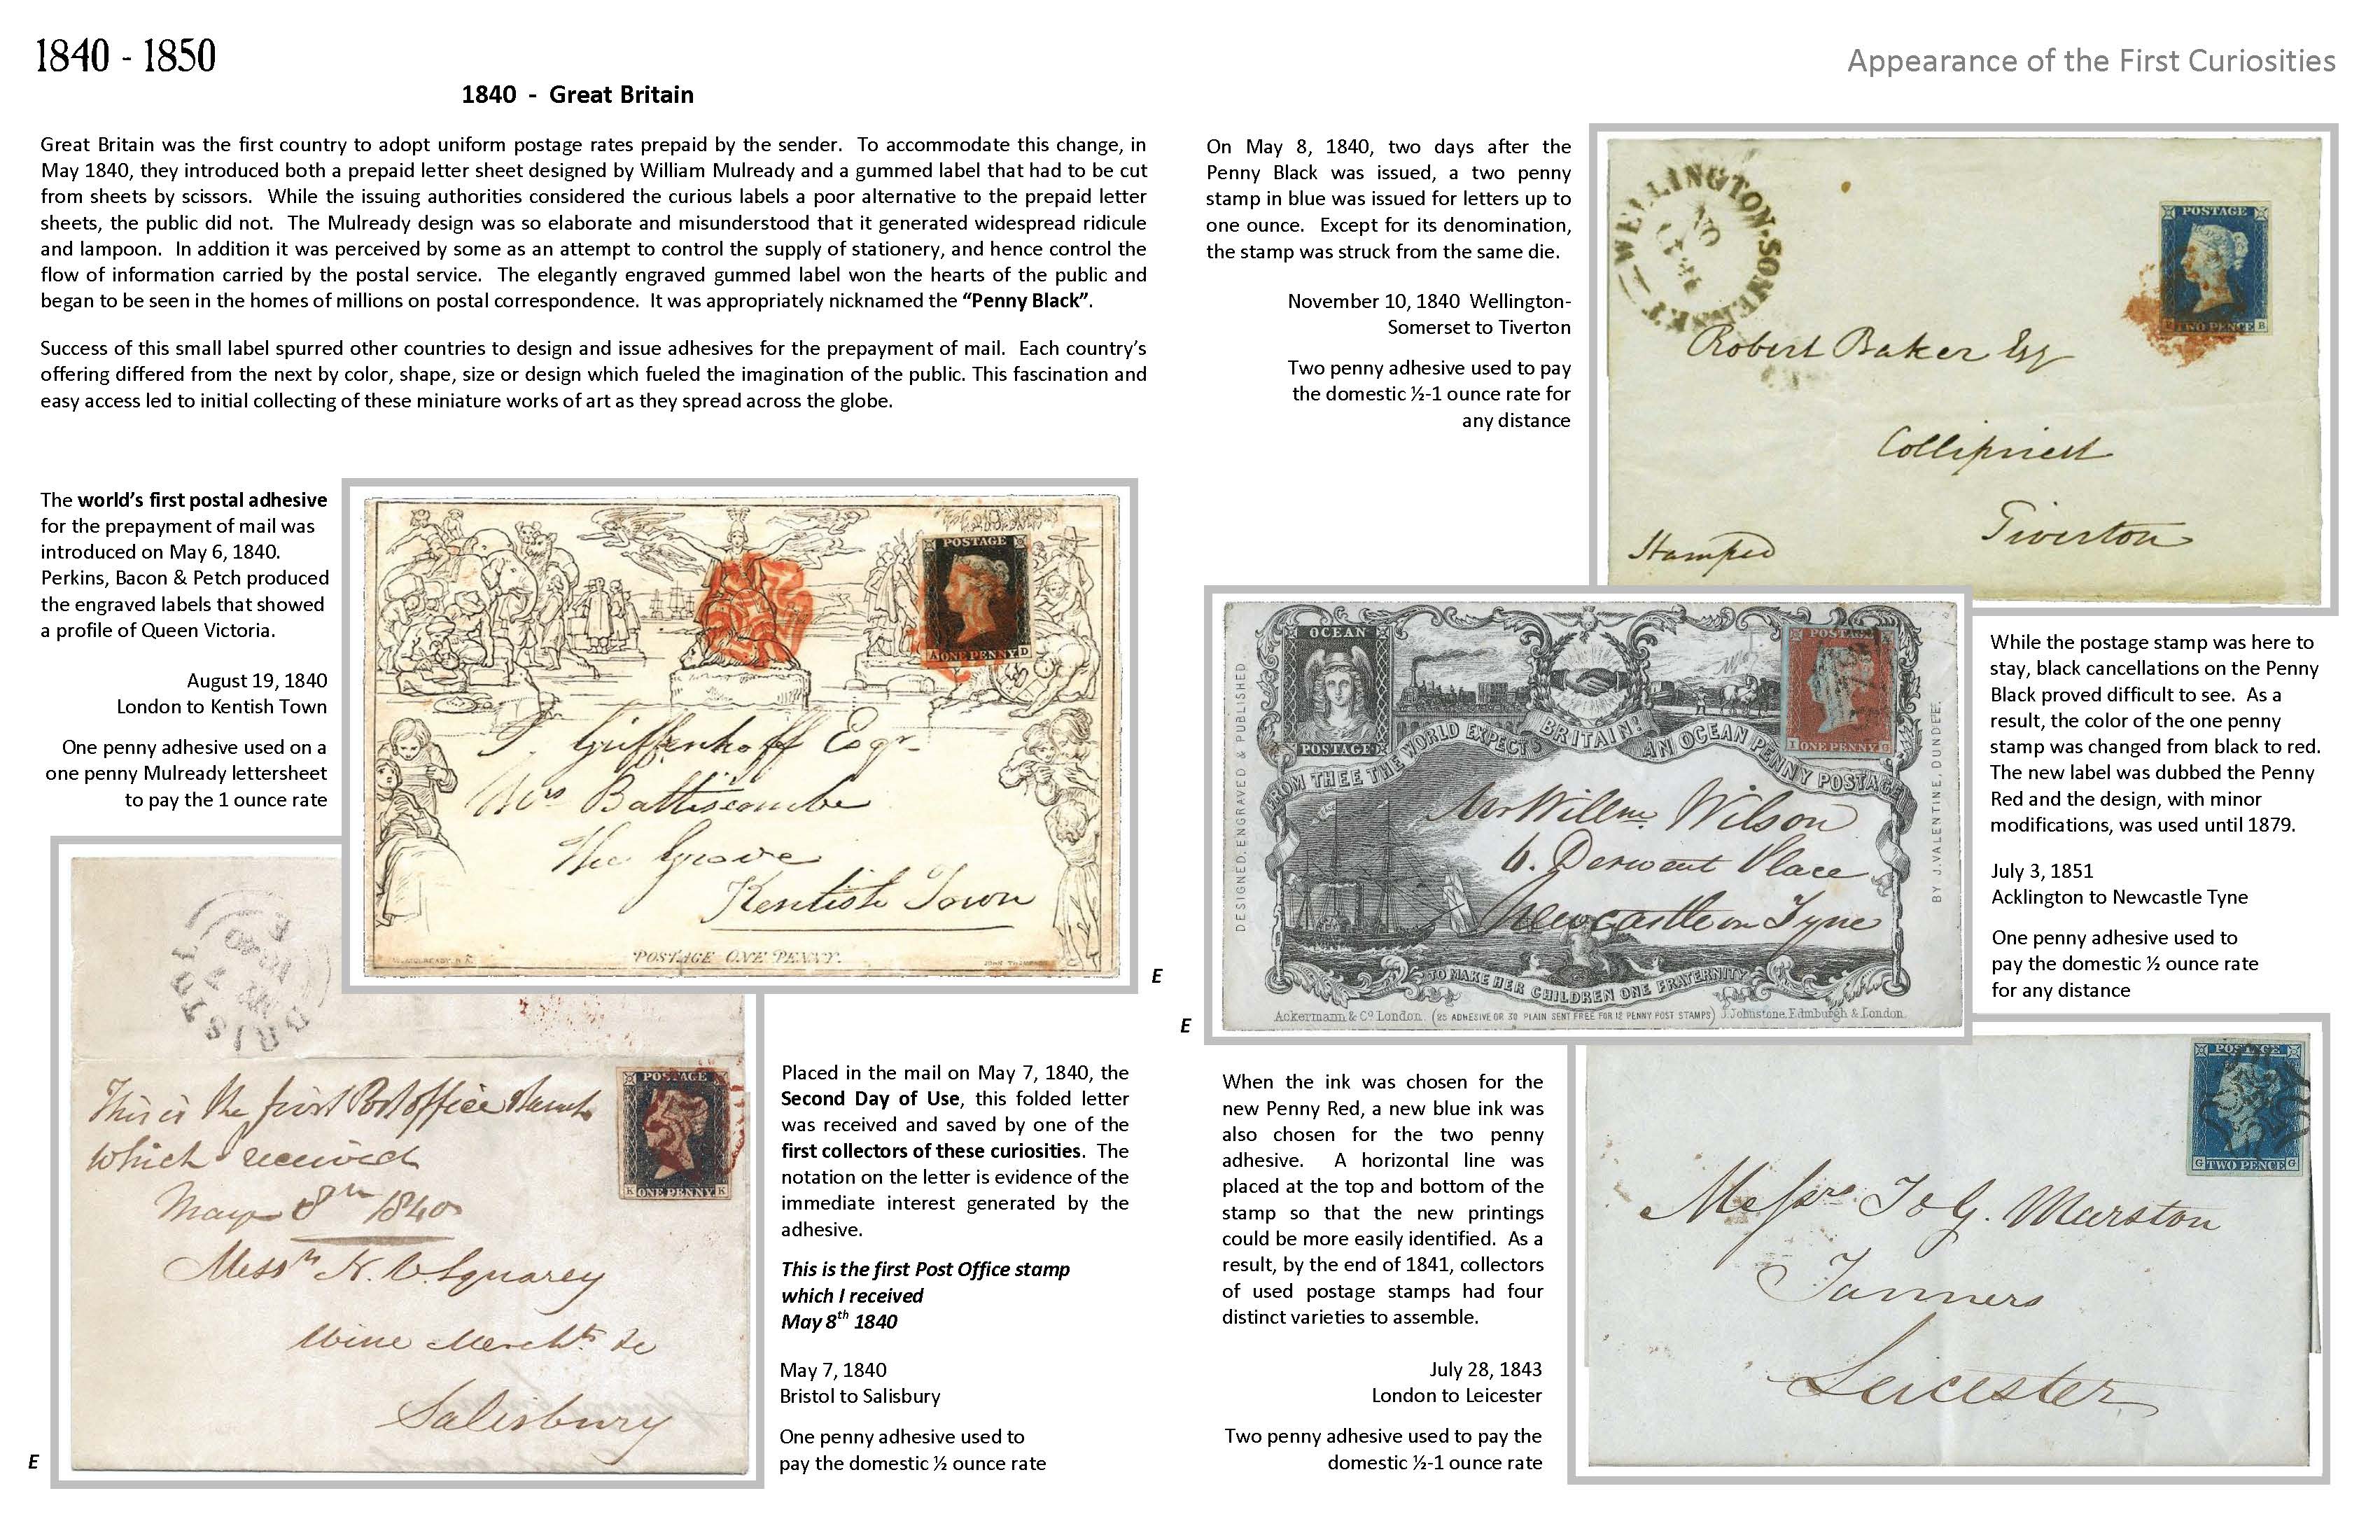 1840 - 1850
Appearance of the First Curiosities
1840 - Great Britain
Great Britain was the first country to adopt uniform postage rates prepaid by the sender. To accommodate this change, in
May 1840, they introduced both a prepaid letter sheet designed by William Mulready and a gummed label that had to be cut
from sheets by scissors. While the issuing authorities considered the curious labels a poor alternative to the prepaid letter
sheets, the public did not. The Mulready design was so elaborate and misunderstood that it generated widespread ridicule
and lampoon. In addition it was perceived by some as an attempt to control the supply of stationery, and hence control the
flow of information carried by the postal service. The elegantly engraved gummed label won the hearts of the public and
began to be seen in the homes of millions on postal correspondence. It was appropriately nicknamed the “Penny Black”.
Success of this small label spurred other countries to design and issue adhesives for the prepayment of mail. Each country’s
offering differed from the next by color, shape, size or design which fueled the imagination of the public. This fascination and
easy access led to initial collecting of these miniature works of art as they spread across the globe.
The world’s first postal adhesive
for the prepayment of mail was
introduced on May 6, 1840.
Perkins, Bacon & Petch produced
the engraved labels that showed
a profile of Queen Victoria.
August 19, 1840
London to Kentish Town
One penny adhesive used on a
one penny Mulready lettersheet
to pay the 1 ounce rate
POSTAGE
A ONE PENNY D
Griffenhoff Esqr
Mrs Battiscombe
The Grove
Kentish Town
POSTAGE ONE PENNY.
E
BRISTOL
MY 7
1840
This is the first Post office stamp
which received
May 8th 1840
POSTAGE
K ONE PENNY K
Messrs
Squarey
Wine Merchts &c
Salisbury
E
Placed in the mail on May 7, 1840, the
Second Day of Use, this folded letter
was received and saved by one of the
first collectors of these curiosities. The
notation on the letter is evidence of the
immediate interest generated by the
adhesive.
This is the first Post Office stamp
which I received
May 8th 1840
May 7, 1840
Bristol to Salisbury
One penny adhesive used to
pay the domestic ½ ounce rate
On May 8, 1840, two days after the
Penny Black was issued, a two penny
stamp in blue was issued for letters up to
one ounce. Except for its denomination,
the stamp was struck from the same die.
November 10, 1840 Wellington-
Somerset to Tiverton
Two penny adhesive used to pay
the domestic ½-1 ounce rate for
any distance
WELLINGTON-SOMERSET
POSTAGE
TWO PENCE B
Robert Baker Esq
Collipriest
Tiverton
Stamped
DESIGNED, ENGRAVED & PUBLISHED
OCEAN
POSTAGE
POSTAGE
ONE PENNY G
FROM THEE THE WORLD EXPECTS BRITAIN! AN OCEAN PENNY POSTAGE
BY J. VALENTINE, DUNDEE.
Mr Willm. Wilson
6. Derwent Place
Newcastle on Tyne
TO MAKE HER CHILDREN ONE FRATERNITY
Ackermann & Co London. (25 ADHESIVE OR 30 PLAIN SENT FREE FOR 12 PENNY POST STAMPS) J. Johnstone, Edinburgh & London.
E
While the postage stamp was here to
stay, black cancellations on the Penny
Black proved difficult to see. As a
result, the color of the one penny
stamp was changed from black to red.
The new label was dubbed the Penny
Red and the design, with minor
modifications, was used until 1879.
July 3, 1851
Acklington to Newcastle Tyne
One penny adhesive used to
pay the domestic ½ ounce rate
for any distance
When the ink was chosen for the
new Penny Red, a new blue ink was
also chosen for the two penny
adhesive. A horizontal line was
placed at the top and bottom of the
stamp so that the new printings
could be more easily identified. As a
result, by the end of 1841, collectors
of used postage stamps had four
distinct varieties to assemble.
July 28, 1843
London to Leicester
Two penny adhesive used to pay the
domestic ½-1 ounce rate
POSTAGE
G TWO PENCE G
Messrs J & G. Marston
Tanners
Leicester